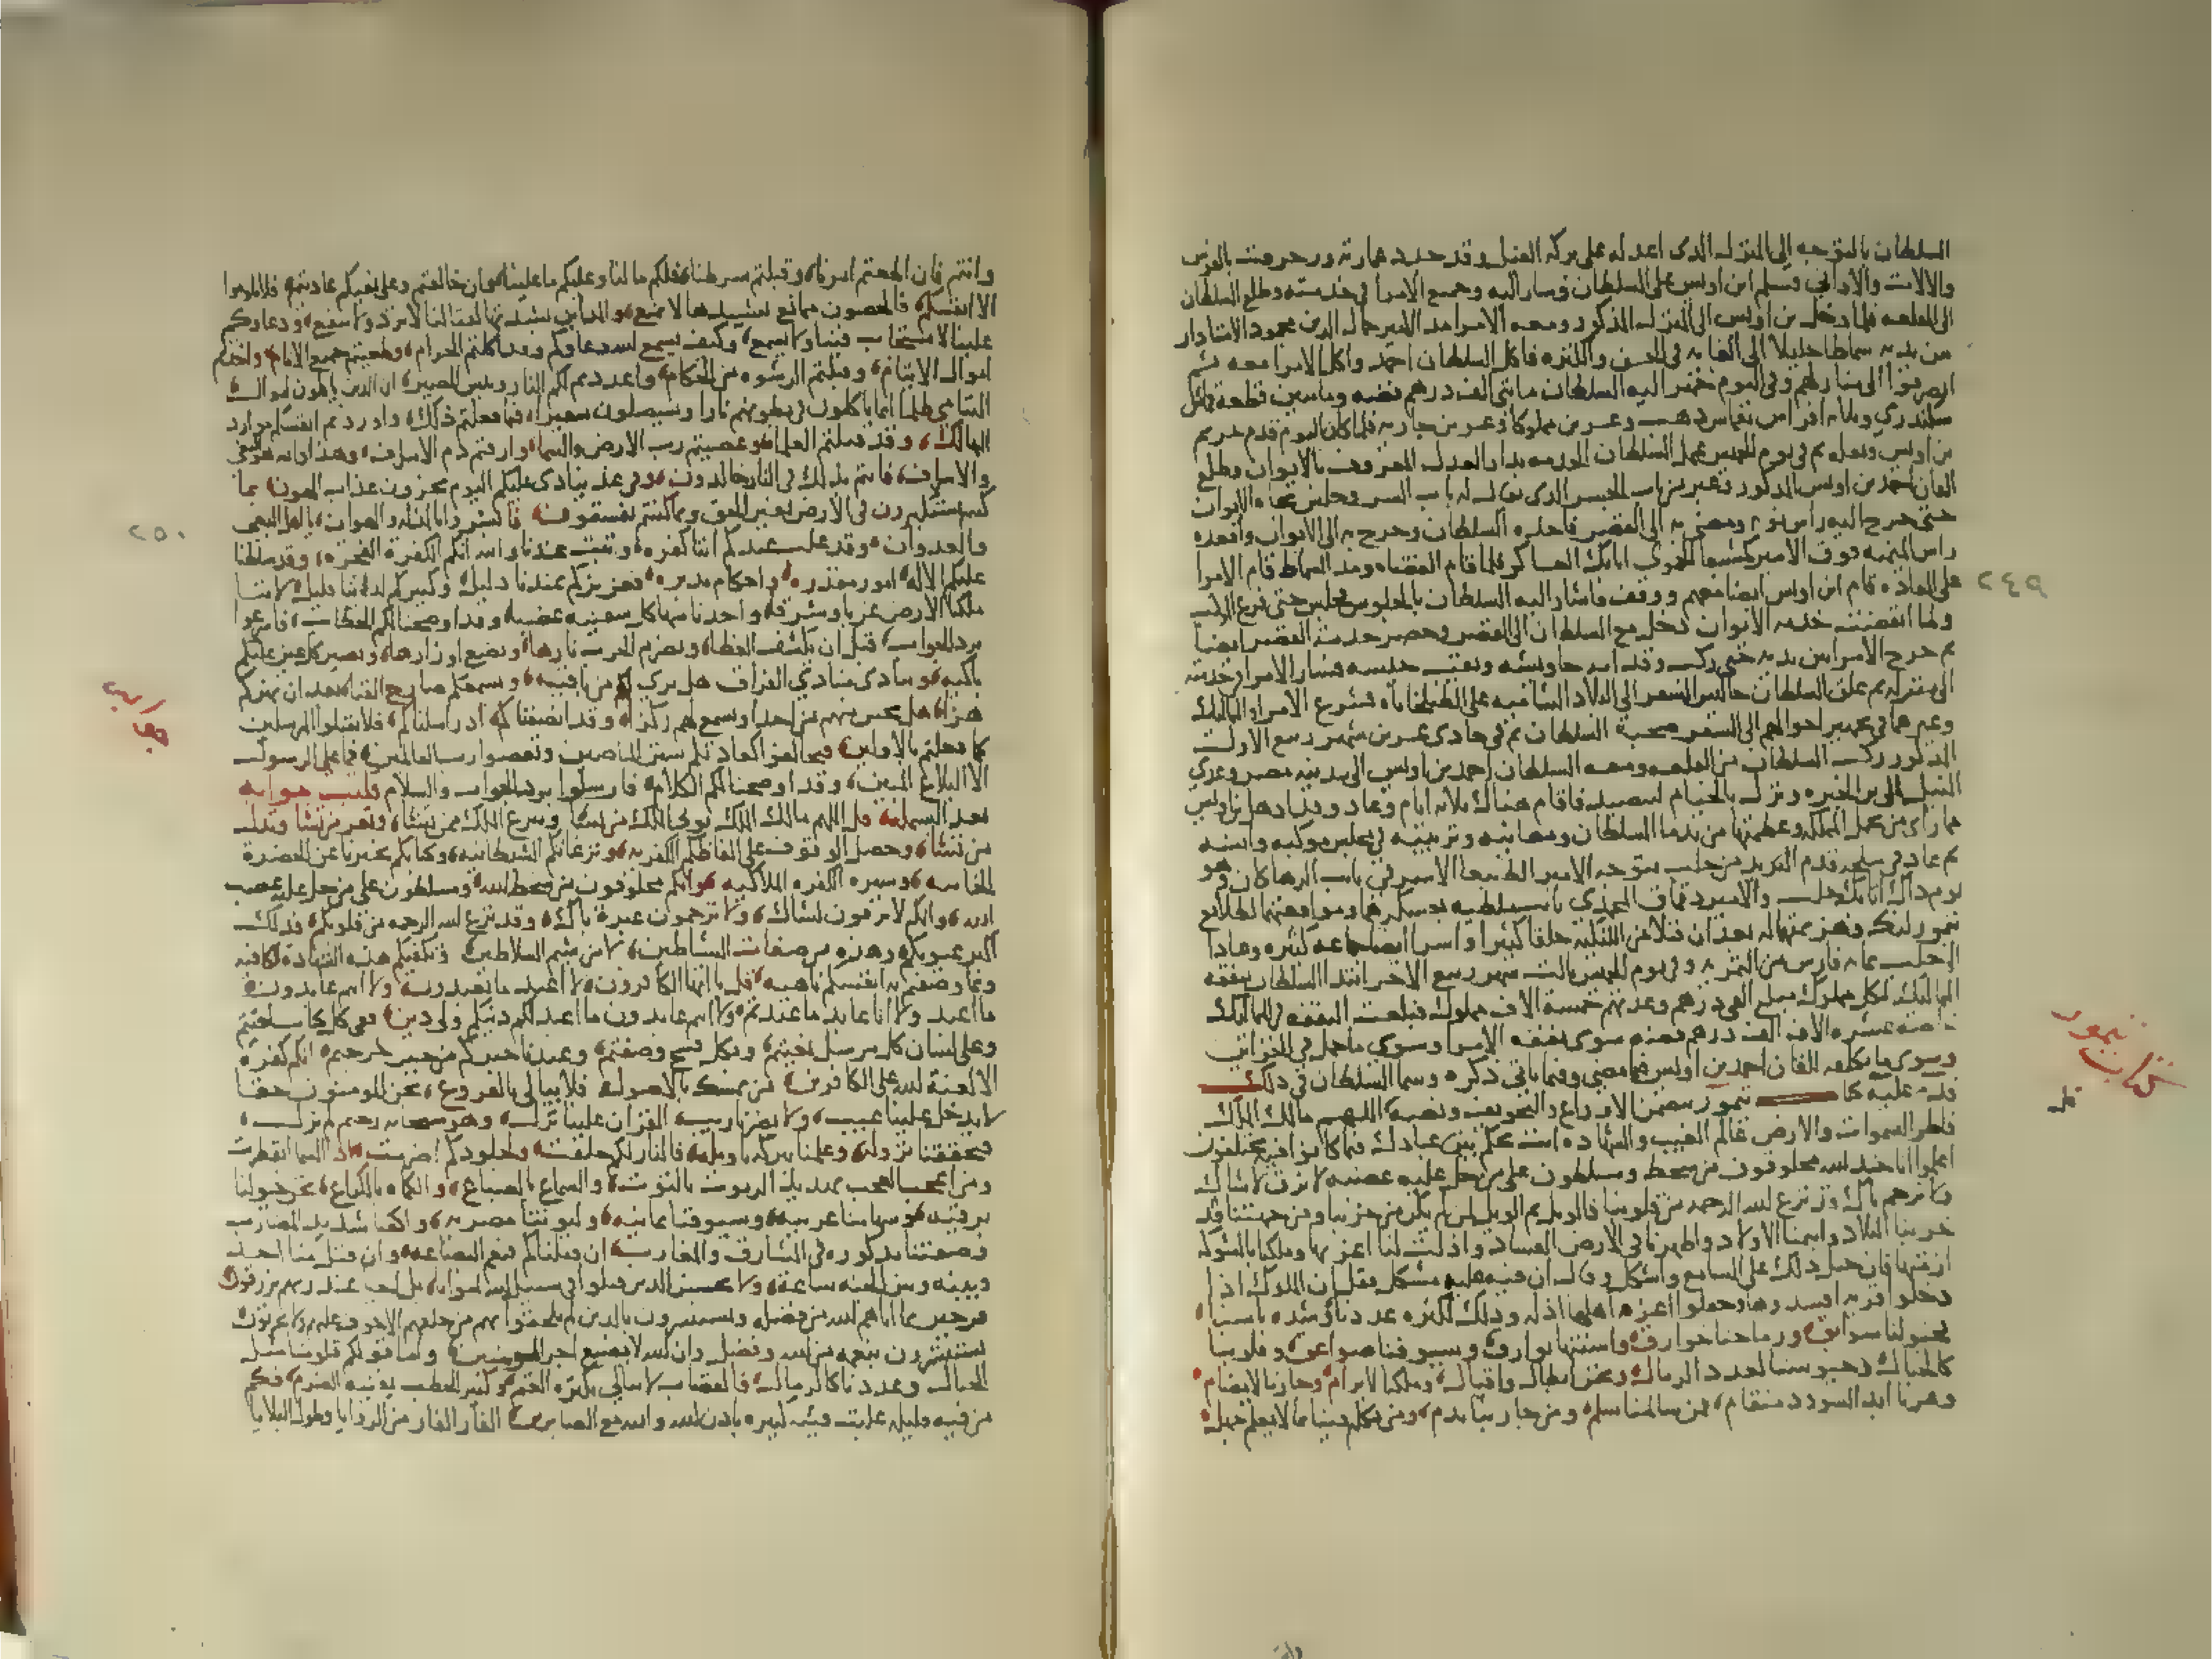 السلطان بالتوجه الى المنزله الذى اعد له على بركه الفيل وقد جدد عمارته ورخرفت بالفرش
والالات والاوانى وسلم ابن اويس على السلطان وسار اليه وجميع الامرا فى خدمته وطلع السلطان
الى القلعه فلما دخل بن اويس الى المنزله المذكور ومعه الامرا مد الامير جمال الدين محمود الاستادار
من يديه سماطا جليلا الى الغايه فى الحسن والكثره فاكل السلطان احمد واكل الامرا معه ثم
انصرفوا الى منازلهم وفى اليوم سير اليه السلطان مائتى الف درهم فضه ومايتين قطعه قماش
سكندرى وثلاثه افراس بقماس دهب وعشرين مملوكا وعشرين جاريه فلما كان اليوم قدم حريم
بن اويس وثقله ثم فى يوم الخميس عمل السلطان الخدمه بدار العدل المعروف بالايوان وطلع
القان احمد بن اويس المذكور وعبر من باب الجسر الذى يقال له باب السر وجلس تجاه الايوان
حتى خرج اليه راس نوبه ومضى به الى القصر فاخذه السلطان وخرج به الى الايوان واقعده
راس الميمنه فوق الامير كمشبغا الحموى اتابك العساكر فلما قام القضاه ومد السماط قام الامرا
على العاده قام ابن اويس ايضا معهم ووقف فاشار اليه السلطان بالجلوس فجلس حتى فرغ الموكب
ولما انقضت خدمه الايوان دخل مع السلطان الى القصر وحضر خدمة القصر ايضا
ثم خرج الامرا بين يديه حتى ركب وقدامه جاويشه ونقيب جيشه فسار الامرا فى خدمته
الى منزله ثم علق السلطان جاليش السفر الى البلاد الشاميه على الطبلخاناه فشرع الامرا والمماليك
وغيرهما فى تجهيز احوالهم الى السفر صحبة السلطان ثم فى حادى عشرين شهر ربيع الاول
المذكور ركب السلطان من القلعه ومعه السلطان احمد بن اويس الى مدينه مصر وعدى
النيل الى بر الجيزه ونزل بالخيام ليتصيد فاقام هناك ثلاثه ايام وعاد وقد ادهل بن اويس
ما راى من تجمل المملكه وعظمتها من ندما السلطان ومغانيه وترتيبه فى مجلس موكبه وانسه
ثم عاد فى سلخه قدم البريد من حلب بتوجه الامير الطنبغا الاشرفى نايب الرها كان وهو
يوم ذاك اتابك حلب والامير دقماق المحمدى نايب ملطيه بعسكرهما وموافقتهما لطلايع
تيمور لنك وهزيمتهما له بعد ان قتلا من اللنكيه خلقا كثيرا واسرا ايضا جماعه كثيره وعادا
الى حلب بمايه فارس من التمريه وفى يوم الخميس ثالث شهر ربيع الاخر ابتدا السلطان بنفقه
المماليك لكل مملوك مبلغ الفى درهم وعدتهم خمسة الاف مملوك فبلغت النفقه فى المماليك
خاصه عشره الاف الف درهم فضه سوى نفقه الامرا وسوى ما حمل فى الخزاين
وسوى ما تكلفه للقان احمد بن اويس فيما مضى وفيما ياتى ذكره وبينما السلطان فى ذلك
قدم عليه كتاب تيمور يتضمن الارداع والتخويف ونصه اللهم مالك الملك
فاطر السموات والارض عالم الغيب والشهاده انت تحكم بين عبادك فيما كانوا فيه يختلفون
اعلموا انا جند الله مخلوقون من سخطه ومسلطون على من حل عليه غضبه لا نرق لشاك
ولا نرحم باك قد نزع الله الرحمه من قلوبنا فالويل ثم الويل لمن لم يكن من حزبنا ومن جهتنا قد
خربنا البلاد وايتمنا الاولاد واظهرنا فى الارض الفساد وذلت لنا اعزتها وملكنا بالشوكه
ازمتها فان خيل ذلك على السامع واشكل وقال ان فيه عليه مشكل فقل ان الملوك اذا
دخلوا قريه افسدوها وجعلوا اعزه اهلها اذله وذلك لكثره عددنا وشده باسنا
فخيولنا سوابق ورماحنا خوارق واسنتنا بوارق وسيوفنا صواعق وقلوبنا
كالجبال وجيوشنا كعدد الرمال ونحن ابطال واقيال وملكنا لا يرام وجارنا لا يضام
وعزنا ابدا لسودد منقام فمن سالمنا سلم ومن حاربنا ندم ومن تكلم فينا بما لا يعلم جهل
٢٤٩
كتاب تيمور
وانتم فان اطعتم امرنا وقبلتم شرطنا فلكم ما لنا وعليكم ما علينا وان خالفتم وعلى بغيكم تماديتم فلا تلوموا
الا انفسكم فالحصون منا مع تشييدها لا تمنع والمداين بشدتها لقتالنا لا ترد ولا تنفع ودعاوكم
علينا لا يستجاب فينا ولا يسمع وكيف يسمع الله دعاوكم وقد اكلتم الحرام وظلمتم جميع الانام واخذتم
اموال الايتام وقبلتم الرشوه من الحكام واعددتم لكم النار وبئس المصير ان الذين ياكلون اموال
اليتامى ظلما انما ياكلون فى بطونهم نارا وسيصلون سعيرا فبما فعلتم ذلك واوردتم انفسكم موارد
المهالك وقد قتلتم العلما وعصيتم رب الارض والسما وارقتم دم الاشراف وهذا والله هو البغى
والاسراف فانتم بذلك فى النار خالدون وفى غد ينادى عليكم اليوم تجزون عذاب الهون بما
كنتم تستكبرون فى الارض بغير الحق وبما كنتم تفسقون فابشروا بالمذله والهوان يا اهل البغى
والعدوان وقد غلب عندكم اننا كفره وثبت عندنا والله انكم الكفرة الفجره وقد سلطنا
عليكم الاله امور مقدره واحكام مدبره فعزيزكم عندنا ذليل وكثيركم لدينا قليل لاننا
ملكنا الارض غربا وشرقا واخذنا منها كل سفينه غصبا وقد اوضحنا لكم الخطاب فاسرعوا
برد الجواب قبل ان ينكشف الغطا وتضرم الحرب نارها وتضع اوزارها وتصير كل عين عليكم
باكيه وينادى منادى الفراق هل ترى لهم من باقيه ويسمعكم صارخ الفنا بعد ان يهزكم
هزا هل تحس منهم من احد او تسمع لهم ركزا وقد انصفناكم اذ راسلناكم فلا تقتلوا المرسلين
كما فعلتم بالاولين فتخالفوا كعادتكم سنن الماضين وتعصوا رب العالمين فما على الرسول
الا البلاغ المبين وقد اوضحنا لكم الكلام فارسلوا برد الجواب والسلام فكتب جوابه
بعد البسمله قل اللهم مالك الملك توتى الملك من تشا وتنزع الملك ممن تشا وتعز من تشا وتذل
من تشا وحصل الوقوف على الفاظكم الكفريه ونزغاتكم الشيطانيه وكتابكم يخبرنا عن الحضرة
الجنابيه وسيره الكفره الملاكيه وانكم مخلوقون من سخط الله ومسلطون على من حل عليه غضب
الله وانكم لا ترقون لشاك ولا ترحمون عبرة باك وقد نزع الله الرحمه من قلوبكم فذلك
اكبر عيوبكم وهذه من صفات الشياطين لا من شيم السلاطين وتكفيكم هذه الشهادة الكافيه
وبما وصفتم به انفسكم ناهيه قل يا ايها الكافرون لا اعبد ما تعبدون ولا انتم عابدون
ما اعبد ولا انا عابد ما عبدتم ولا انتم عابدون ما اعبد لكم دينكم ولى دين ففى كل كتاب لعنتم
وعلى لسان كل مرسل نعتم وبكل قبيح وصفتم وعندنا خبركم من حين خرجتم انكم كفره
الا لعنة الله على الكافرين من تمسك بالاصول فلا يبالى بالفروع نحن المومنون حقا
لا يدخل علينا عيب ولا يضرنا ريب القران علينا نزل وهو سبحانه رحيم لم يزل
فتحققنا نزوله وعلمنا ببركه تاويله فالنار لكم خلقت ولجلودكم اضرمت اذا السما انفطرت
ومن اعجب العجب تهديد الرتوت بالتوت والسباع بالضباع والكماه بالكراع نحن خيولنا
برقيه وسهامنا عربيه وسيوفنا يمانيه وليوثنا مضريه واكفنا شديد المضارب
وصفتنا مذكوره فى المشارق والمغارب ان قتلناكم فنعم البضاعه وان قتل منا احد
فبينه وبين الجنه ساعة ولا تحسبن الذين قتلوا فى سبيل الله امواتا بل احيا عند ربهم يرزقون
فرحين بما اتاهم الله من فضله ويستبشرون بالذين لم يلحقوا بهم من خلفهم الا خوف عليهم ولا هم يحزنون
يستبشرون بنعمه من الله وفضل وان الله لا يضيع اجر المومنين واما قولكم قلوبنا مثل
الجبال وعددنا كالرمال فالقصاب لا يبالى بكثره الغنم وكثير الحطب يفنيه الضرم فكم
من فئيه قليله غلبت فئه كثيره باذن الله والله مع الصابرين الفار الفار من الرزايا وحلول البلايا
٢٥٠
جوابه